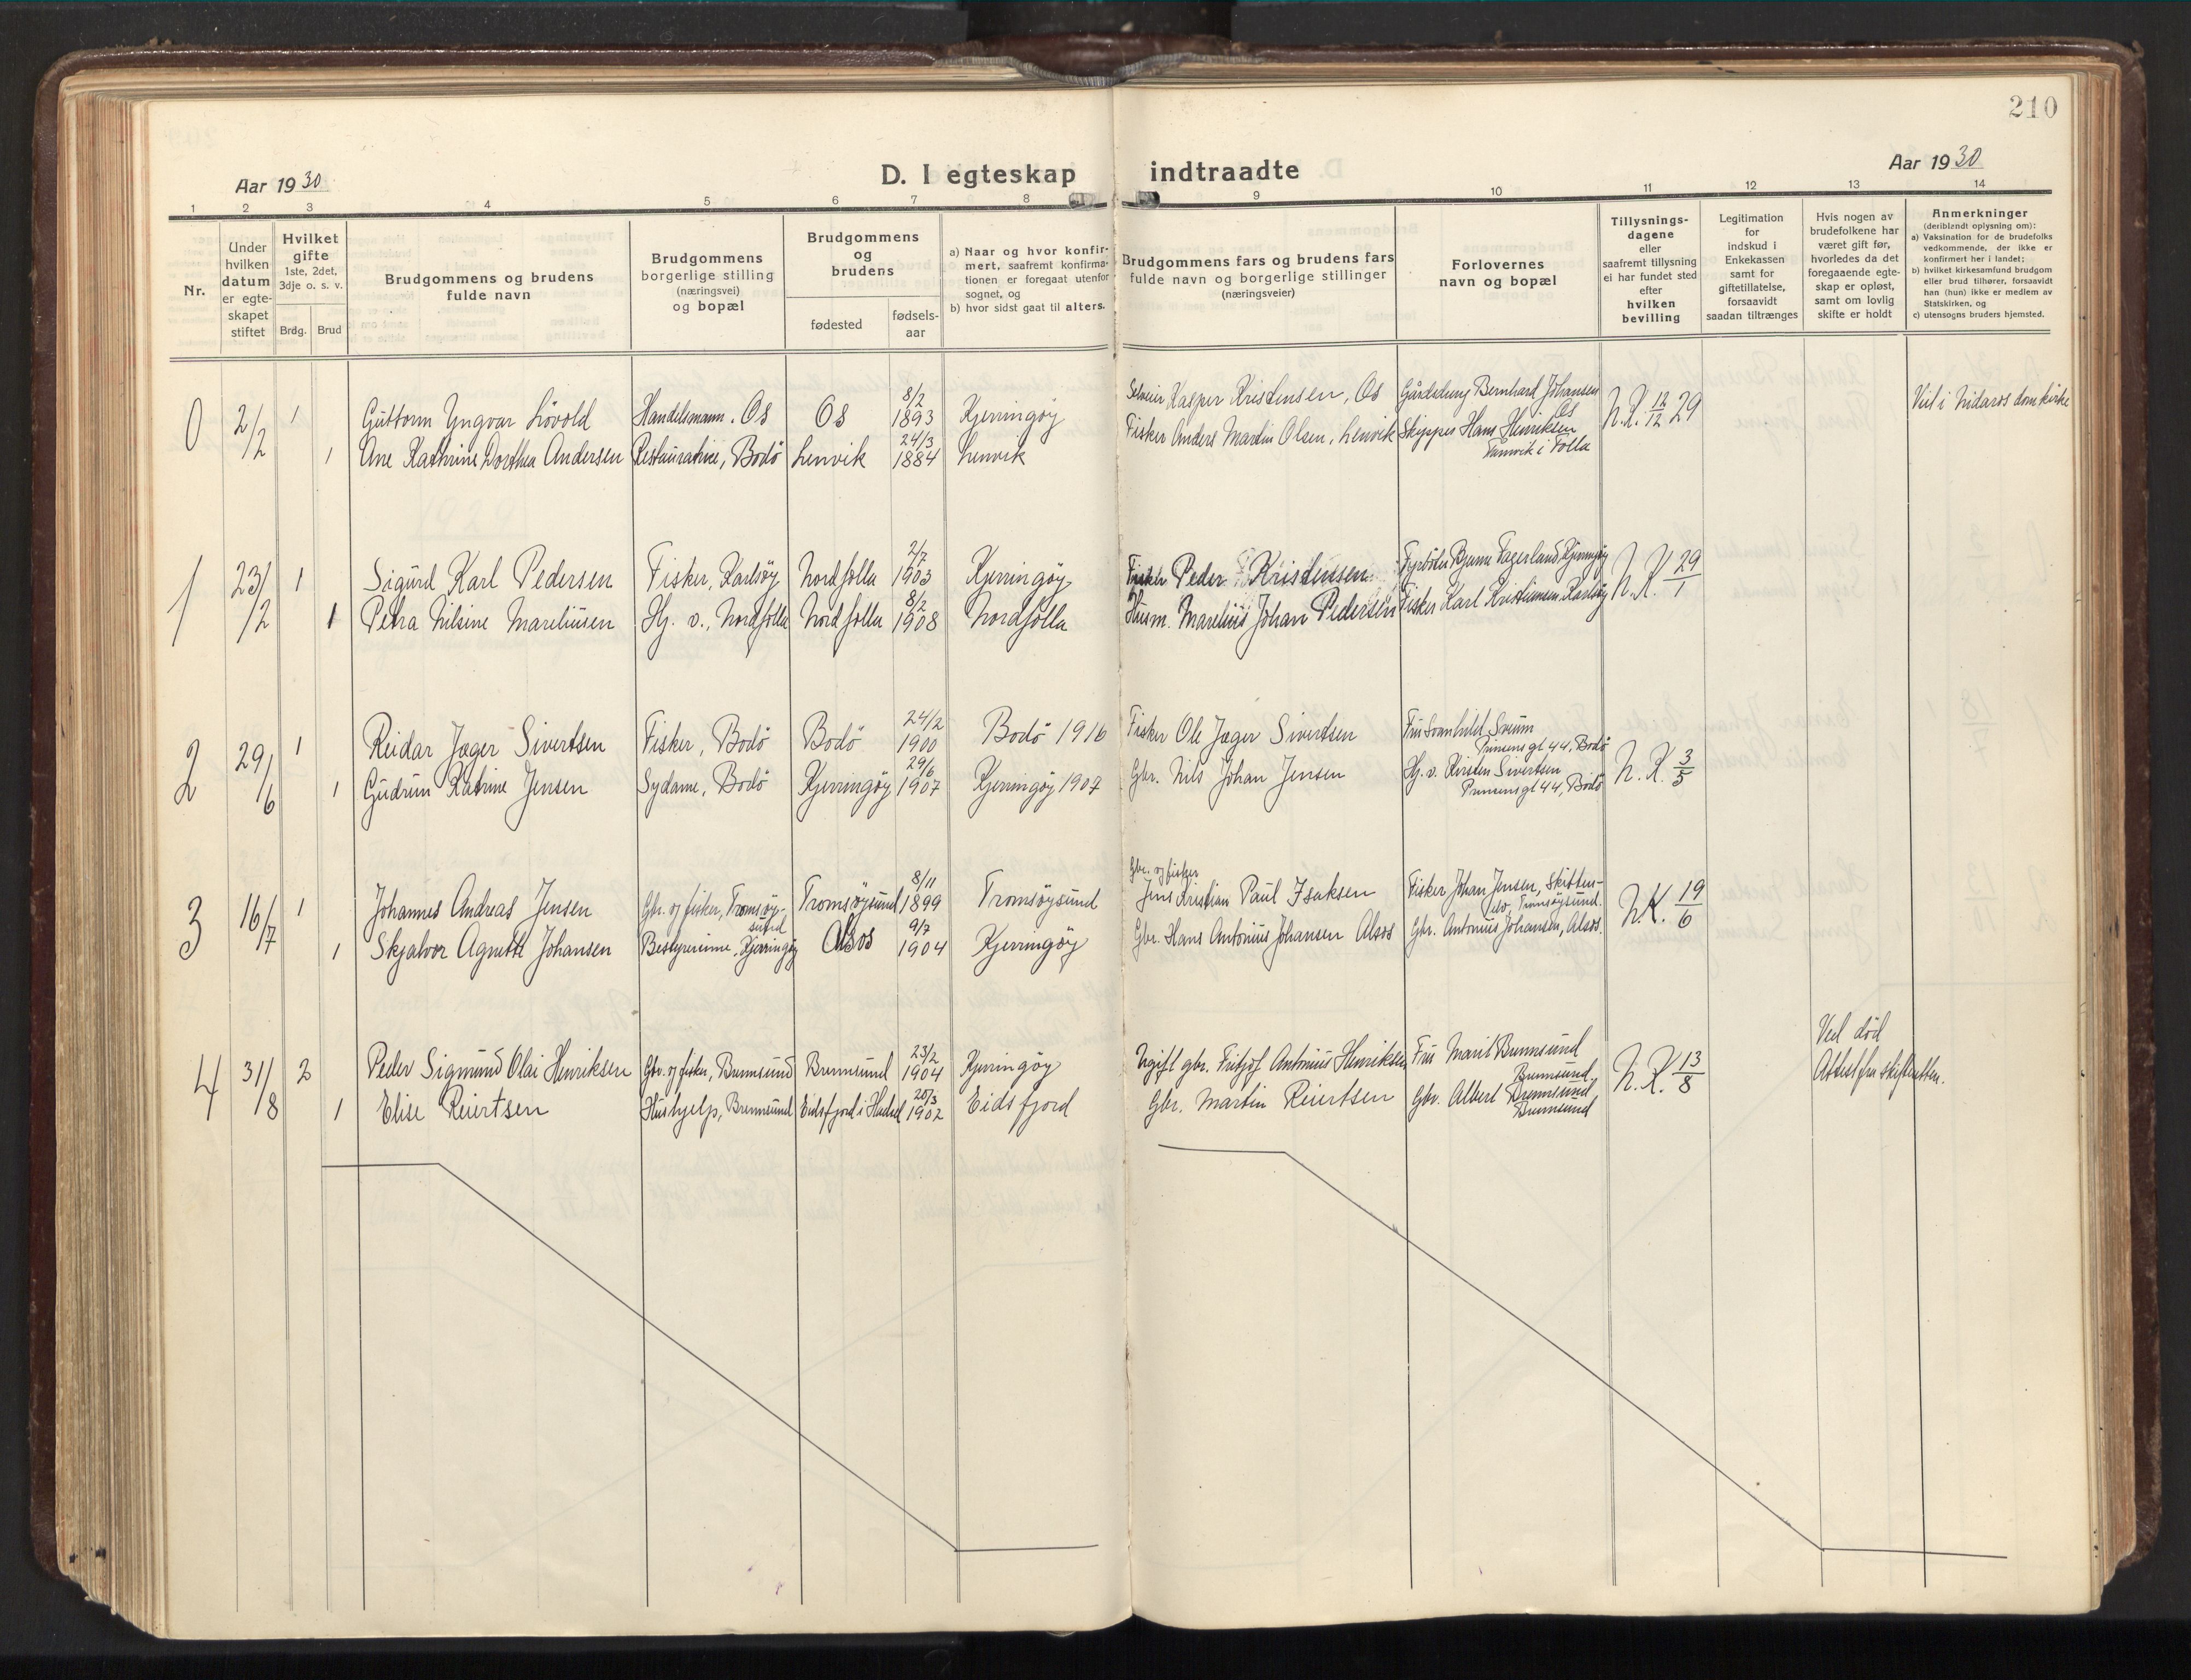 210
Aar 1930
D. I egteskap indtraadte
Aar 1930
1 2 3 4 5 6 7 8 9 10 11 12 13 14
Nr.
Under
hvilken
datum
er egte-
skapet
stiftet
Hvilket
gifte
1ste, 2det,
3dje o. s. v.
Brdg. Brud
Brudgommens og brudens
fulde navn
Brudgommens
borgerlige stilling
(næringsvei)
og bopæl
Brudgommens
og
brudens
fødested
fødsels-
aar
a) Naar og hvor konfir-
mert, saafremt konfirma-
tionen er foregaat utenfor
sognet, og
b) hvor sidst gaat til alters.
Brudgommens fars og brudens fars
fulde navn og borgerlige stillinger
(næringsveier)
Forlovernes
navn og bopæl
Tillysnings-
dagene
eller
saafremt tillysning
ei har fundet sted
efter
hvilken
bevilling
Legitimation
for
indskud i
Enkekassen
samt for
giftetillatelse,
forsaavidt
saadan tiltrænges
Hvis nogen av
brudefolkene har
været gift før,
hvorledes da det
foregaaende egte-
skap er opløst,
samt om lovlig
skifte er holdt
Anmerkninger
(deriblandt oplysning om):
a) Vaksination for de brudefolks
vedkommende, der ikke er
konfirmert her i landet;
b) hvilket kirkesamfund brudgom
eller brud tilhører, forsaavidt
han (hun) ikke er medlem av
Statskirken, og
c) utensogns bruders hjemsted.
0 2/2 1 Guttorm Yngvar Lövold Handelsmann. Os Os 8/2 1893 Kjerringöy Selveier Kasper Kristensen, Os Gårdsdreng Bernhard Johansen Os N.K. 12/12 29 Viet i Nidaros domkirke
1 Ane Kathrine Dorthea Andersen Restauratrice, Bodö Lenvik 24/3 1884 Lenvik Fisker Anders Martin Olsen, Lenvik Skipper Hans Henriksen
i Folla
1 23/2 1 Sigurd Karl Pedersen Fisker, Karlsöy Nordfolla 2/7 1903 Kjerringöy Fisker Peder Kristensen Fyrböter Bjarne Fagerland, Kjerringöy N.K. 29/1
1 Petra Nilsine Mareliusen Hj. v., Nordfolla Nordfolla 8/2 1908 Nordfolla Husm. Marelius Johan Pedersen Fisker Karl Kristiansen Karlsöy
2 29/6 1 Reidar Jæger Sivertsen Fisker, Bodö Bodö 24/2 1900 Bodö 1916 Fisker Ole Jæger Sivertsen Fru Svanhild Sveum
Prinsensgt 44, Bodö N.K. 3/5
1 Gudrun Katrine Jensen Sydame, Bodö Kjerringöy 29/6 1907 Kjerringöy 1907 Gbr. Nils Johan Jensen Hj. v. Kirsten Sivertsen
Prinsensgt 44, Bodö
3 16/7 1 Johannes Andreas Jensen Gbr. og fisker, Tromsöy-
sund Tromsöysund 8/11 1899 Tromsöysund Gbr. og fisker
Jens Kristian Paul Isaksen Fisker Johan Jensen, Skitten-
elv, Tromsöysund. N.K. 19/6
1 Skjalvor Agnette Johansen Bestyrerinne, Kjerringöy Alsos 9/7 1904 Kjerringöy Gbr. Hans Antonius Johansen Alsos Gbr. Antonius Johansen, Alsos.
4 31/8 2 Peder Sigmund Olai Henriksen Gbr. og fisker, Brennsund Brennsund 23/2 1904 Kjerringöy Ugift gbr. Fritjof Antonius Henriksen Fru Marit Brennsund
Brennsund. N.K. 13/8 Ved död
Attest fra skifteretten.
1 Elise Reiertsen Hushjelp, Brennsund Eidsfjord i Hadsel 20/3 1902 Eidsfjord Gbr. Martin Reiertsen Gbr. Albert Brennsund
Brennsund